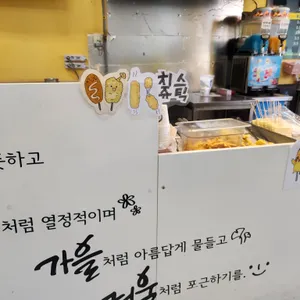 치즈
스틱
듯하고
처럼 열정적이며
가을처럼 아름답게 물들고
겨울처럼 포근하기를.